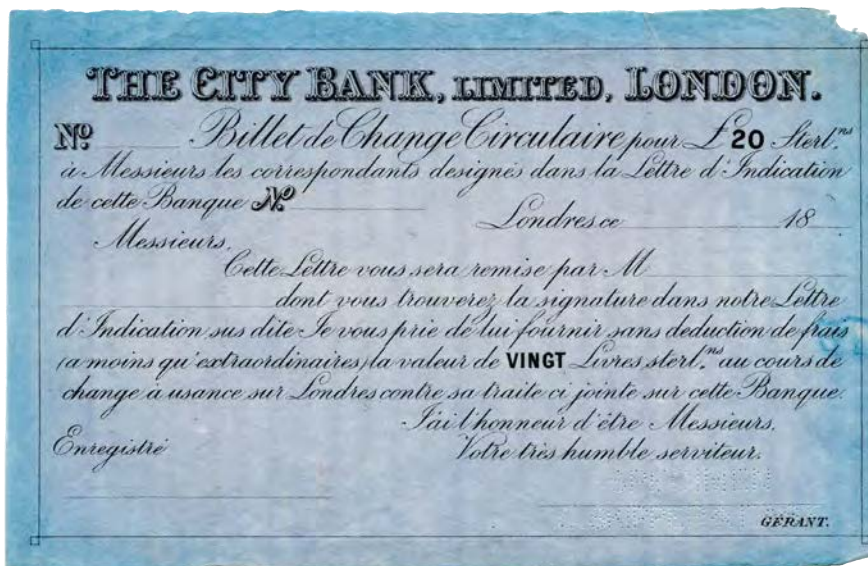 THE CITY BANK, LIMITED, LONDON.
Nº Billet de Change Circulaire pour £ 20 Sterl.ns
à Messieurs les correspondants designés dans la Lettre d'Indication
de cette Banque Nº
Londres ce 18
Messieurs,
Cette Lettre vous sera remise par M
dont vous trouverez la signature dans notre Lettre
d'Indication sus dite Je vous prie de lui fournir sans deduction de frais
(a moins qu'extraordinaires) la valeur de VINGT Livres sterl.ns au cours de
change à usance sur Londres contre sa traite ci jointe sur cette Banque.
J'ai l'honneur d'étre Messieurs,
Enregistré Votre très humble serviteur.
GÉRANT.